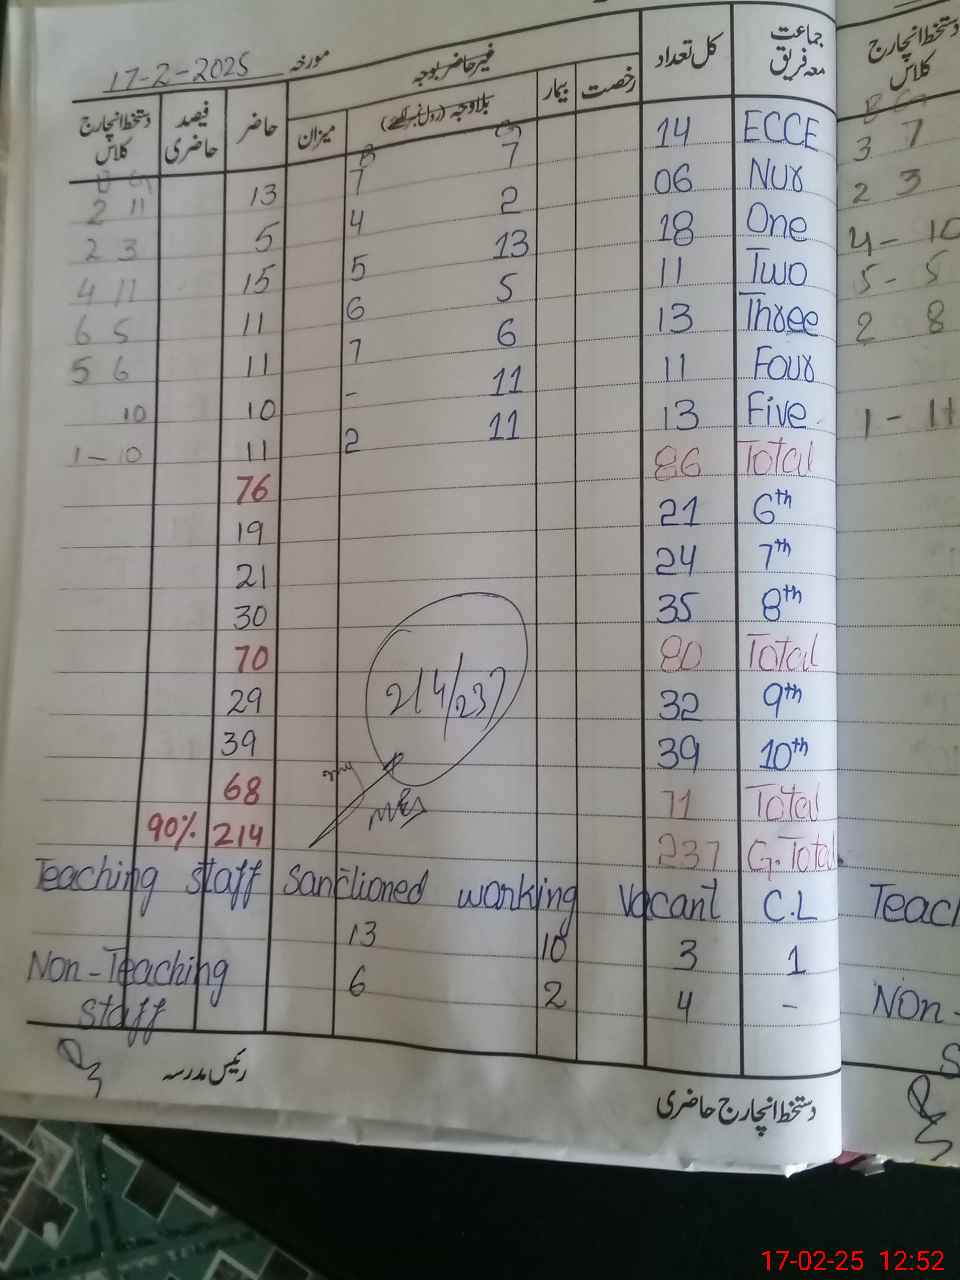 مورخہ 17-2-2025
جماعت معہ فریق کل تعداد غیر حاضر بوجہ حاضر فیصد حاضری دستخط انچارج کلاس
رخصت بیمار بلاوجہ (رول نمبر لکھیے) میزان
B G
ECCE 14 7 7 13 2 11
Nur 06 2 4 5 2 3
One 18 13 5 15 4 11
Two 11 5 6 11 6 5
Three 13 6 7 11 5 6
Four 11 11 - 10 10
Five 13 11 2 11 1-10
Total 86 76
6th 21 19
7th 24 21
8th 35 30
Total 80 70
9th 32 29
10th 39 39
Total 71 68
G.Total 237 214 90%
214/237
Teaching staff sanctioned working Vacant C.L
13 10 3 1
Non-Teaching staff 6 2 4 -
رئیس مدرسہ
دستخط انچارج حاضری
دستخط انچارج کلاس
3 7
2 3
4- 10
5- 5
2 8
1- 11
Teac
Non-
S
17-02-25 12:52